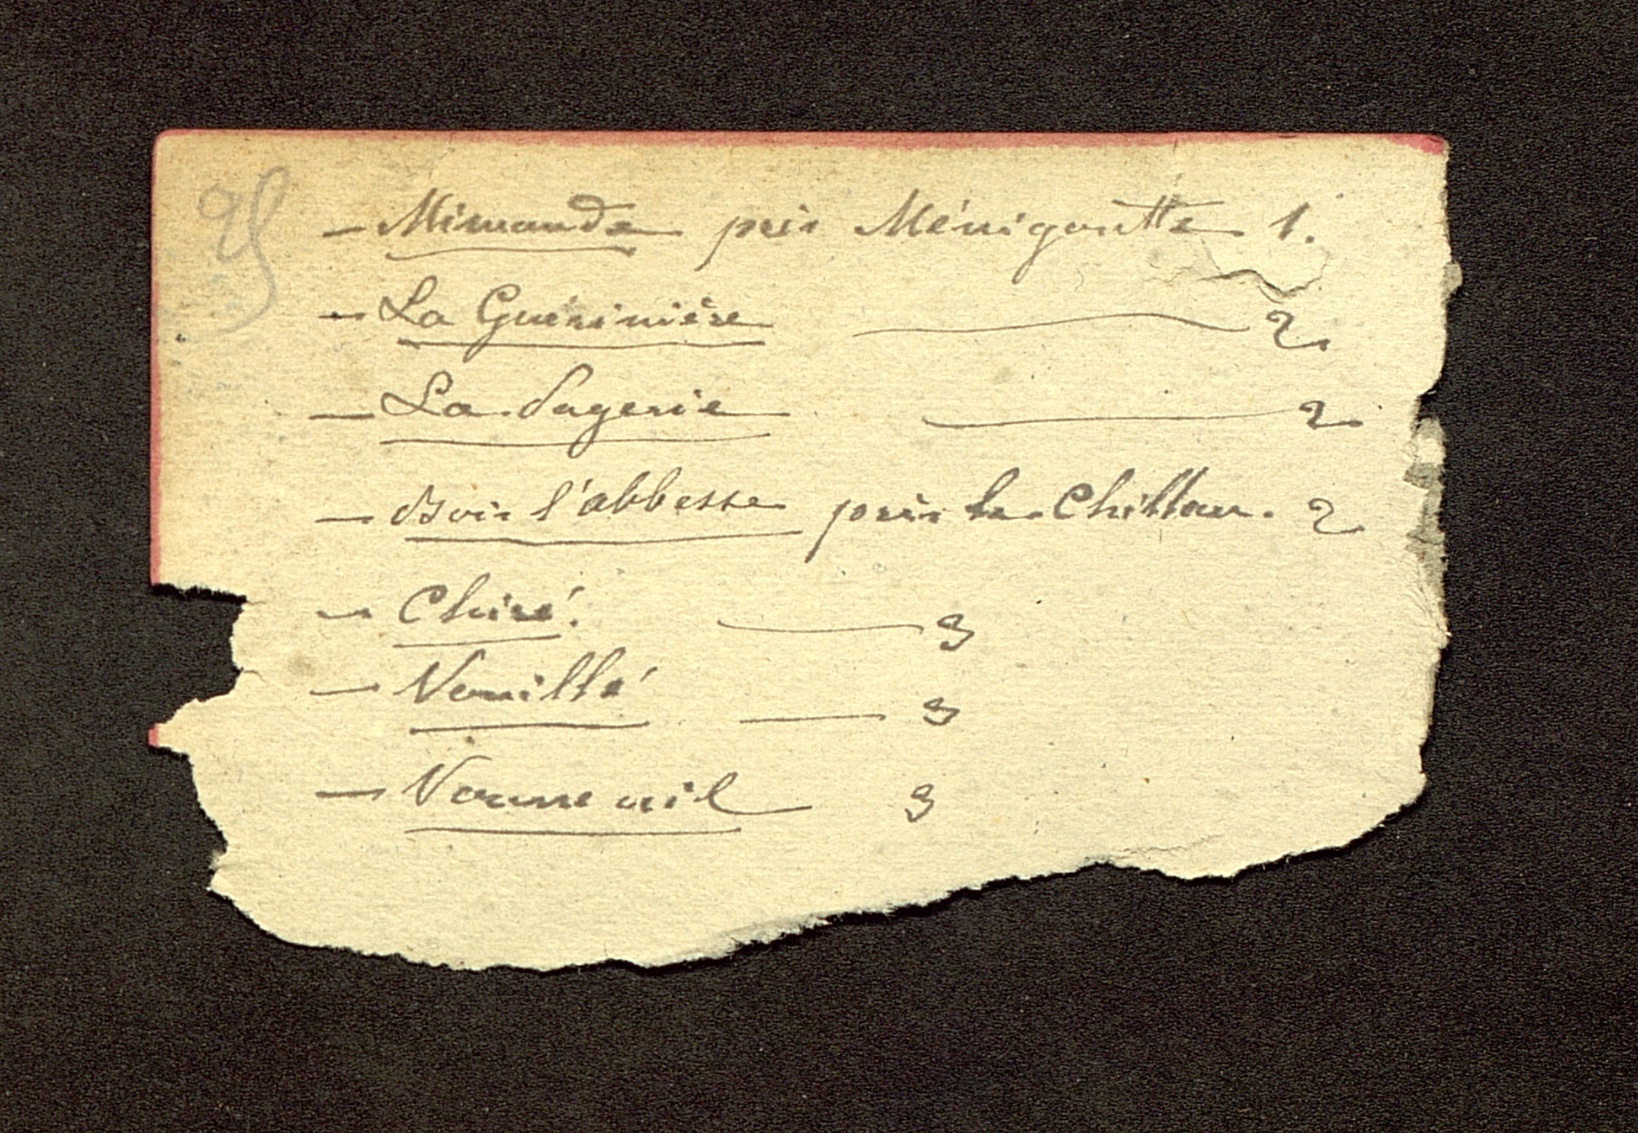 25
- Mimaude près Ménigoutte 1.
- La Guérinière ——— 2.
- La Sugerie ——— 2
- Bois l'abbesse près le Chillou. 2
- Chiré. ——— 3
- Neuillé ——— 3
- Vouneuil 3